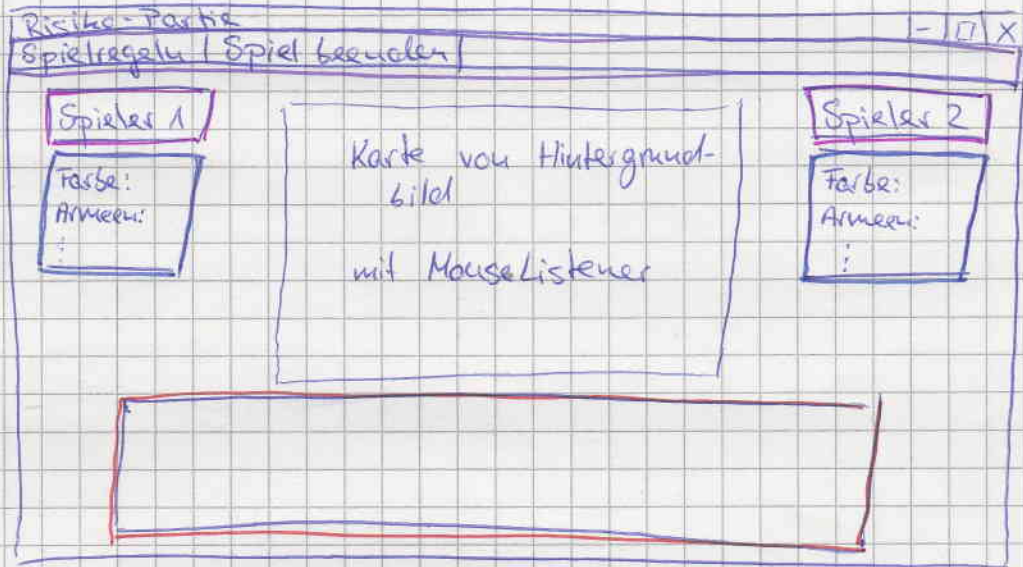 Risiko-Partie
Spielregeln | Spiel beenden |
Spieler 1
Farbe:
Armeen:
⋮
Karte von Hintergrund-
bild
mit MouseListener
Spieler 2
Farbe:
Armeen:
⋮